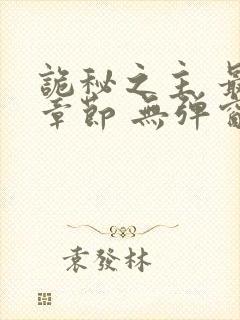 詭秘之主 最
章節 無彈窗
袁發林